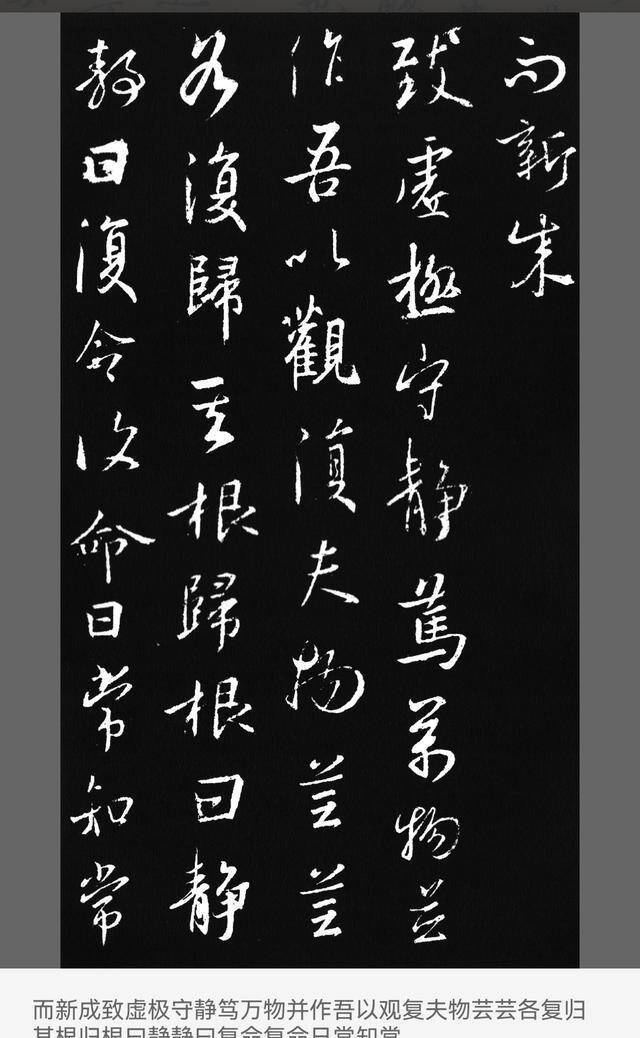 而新成
致虚極守静篤萬物並
作吾以觀復夫物芸芸
各復歸其根歸根曰静
靜曰復命復命曰常知常
而新成致虚极守静笃万物并作吾以观复夫物芸芸各复归
其根归根曰静静曰复命复命曰常知常